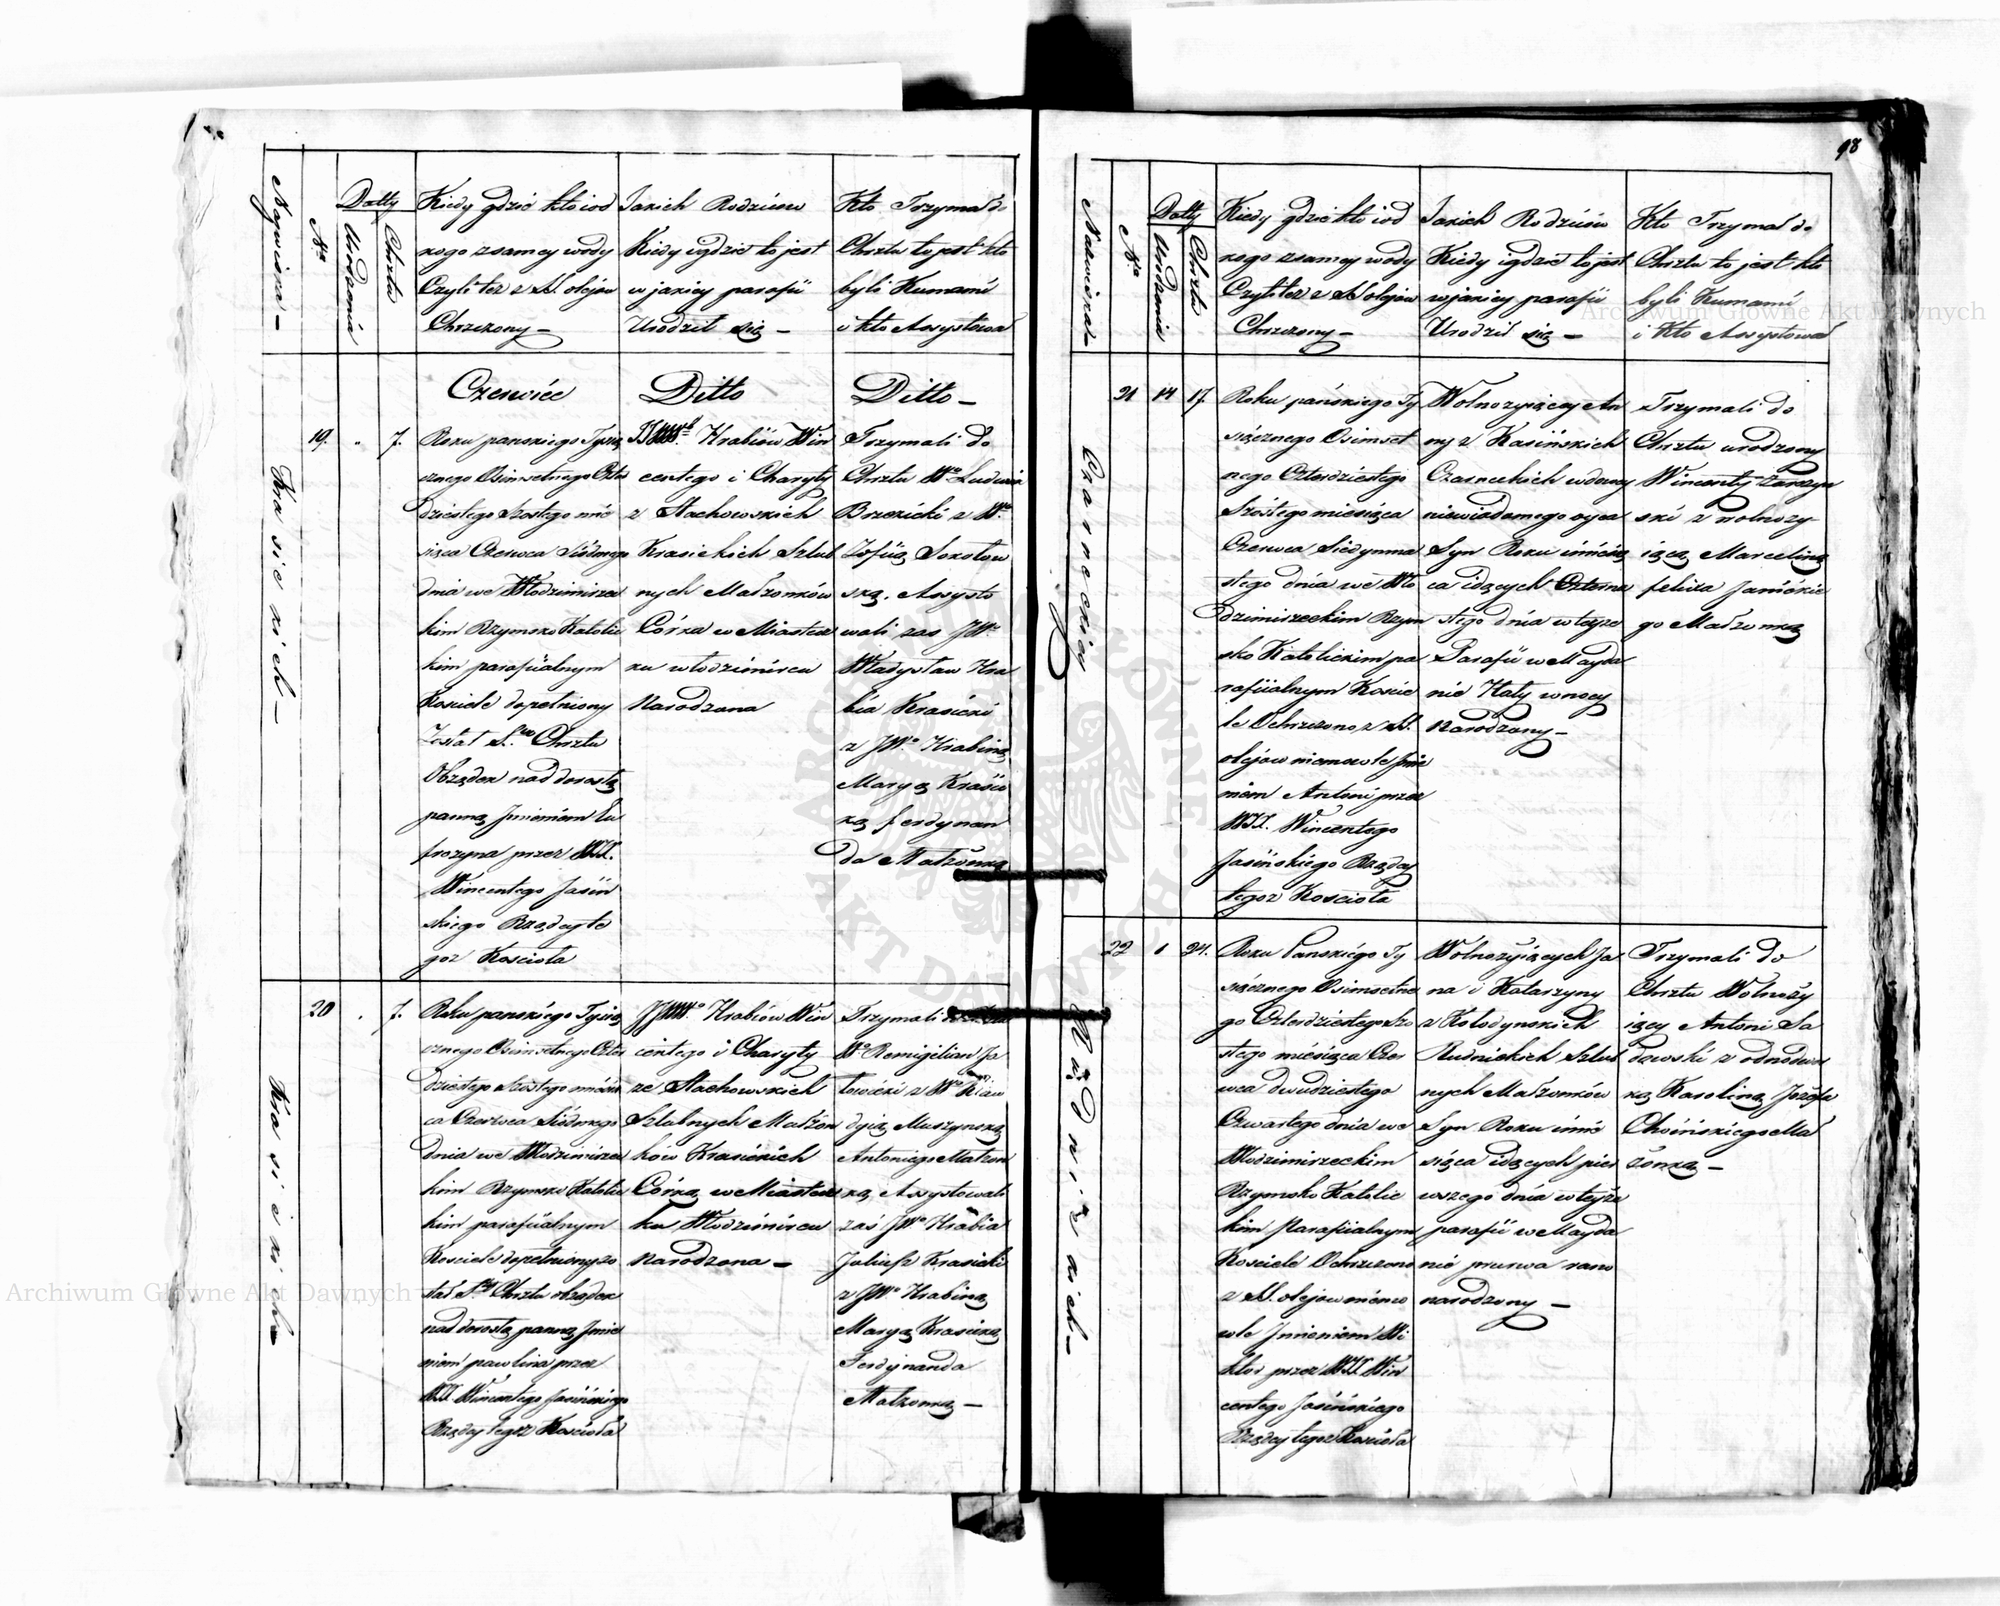 98
Nazwiska
Nro
Datty
Urodzenia
Chrztu
Kiedy gdzie kto i od
kogo z samey wody
Czyli też z SS. olejów
Chrzczony –
Jakich Rodziców
Kiedy i gdzie to jest
w jakiey parafii
Urodził się –
Kto Trzymał do
Chrztu to jest kto
byli Kumami
i kto Assystował
Krasickich –
19.
7.
Czerwiec
Roku panskiego Tysią
cznego Osimsetnego Czter
dziestego Szostego mie
siąca Czerwca Siódmego
dnia we Włodzimirzec
kim Rzymsko Katolic
kim parafiialnym
Kosciele dopełniony
Został S. Chrztu
Obrządek nad dorosłą
panną Jmieniem Eu
frozyna przez WJX.
Wincentego Jasiń
skiego Rządcy te
goz Kosciola
Ditto
Hrabiów Win
centego i Charyty
z Stachowskich
Krasickich Szlub
nych Małżonków
Córka w Miastecz
ku włodzimircu
Narodzona
Ditto –
Trzymali do
Chrztu Wo Ludwik
Brzezicki z Wą
Zofiią Sokołow
ską. Assysto
wali zas JWo
Władysław Hra
bia Krasicki
z JWo Hrabiną
Maryą Krasic
ką ferdynan
da Małżonką
Krasickich
20
7.
Roku panskiego Tysią
cznego Osimsetnego Czter
dziestego Szostego miesią
ca Czerwca Siódmego
dnia we Włodzimirzec
kim Rzymsko Katolic
kim parafiialnym
Kosciele dopełniony zo
stał S. Chrztu obrządek
nad dorosłą panną Jmie
niem pawlina przez
WJX Wincentego Jasińskiego
Rządcy tegoz Kosciola
Hrabiów Win
centego i Charyty
ze Stachowskich
Szlubnych Małżon
ków Krasickich
Córka w Miastecz
ku Włodzimircu
Narodzona –
Trzymali
Wo Remigiian Ja
łowicki z Wą Klaw
dyią Muszynską
Antoniego Małżon
ką, Assystowali
zaś JWo Hrabia
Juliusz Krasicki
z JWo Hrabiną
Maryą Krasicką
Ferdynanda
Małżonką –
Nazwiska
Nro
Datty
Urodzenia
Chrztu
Kiedy gdzie kto i od
kogo z samey wody
Czyli też z SS olejów
Chrzczony –
Jakich Rodziców
Kiedy i gdzie to jest
w jakiey parafii
Urodził się –
Kto Trzymał do
Chrztu to jest kto
byli Kumami
i kto Assystował
Czarneckiey
21
14
17.
Roku pańskiego Ty
siącznego Osimset
nego Czterdziestego
Szóstego miesiąca
Czerwca Siedymna
stego dnia we Wło
dzimirzeckim Rzym
sko Katolickim pa
rafiialnym Koscie
le Ochrzczono, z SS.
olejow niemowle Jmie
niem Antoni przez
WJX. Wincentego
Jasińskiego Rządcy
tegoz Kosciola
Wolnożyiącey An
ny z Kasińskich
Czarneckich wdowy
niewiadomego oyca
Syn Roku i miesią
ca idących Czterna
stego dnia w teyże
Parafii w Mayda
nie Huty w nocy
Narodzony –
Trzymali do
Chrztu urodzony
Wincenty
ski z wolnoży
iącą Marcelliną
felixa
go Małżonką
Rudnickich –
22
1
24.
Roku Panskiego Ty
siącznego Osimsetne
go Czterdziestego Szo
stego miesiąca Czer
wca dwudziestego
Czwartego dnia we
Włodzimirzeckim
Rzymsko Katolic
kim Parafiialnym
Kosciele Ochrzczono
z SS. olejow niemo
wle Jmieniem Wi
ktor przez WJX Win
centego Jasińskiego
Rządcy tegoz Kosciola
Wolnożyiących Ja
na i Katarzyny
z Kołodynskich
Rudnickich Szlub
nych Małżonków
Syn Roku i mie
siąca idących pier
wszego dnia w teyże
parafii w Mayda
nie rano
narodzony –
Trzymali do
Chrztu Wolnoży
iący Antoni Sa
dowski z odnodwor
ką Karoliną Józefa
Choińskiego Mał
żonką –
Archiwum Główne Akt Dawnych
Archiwum Główne Akt Dawnych